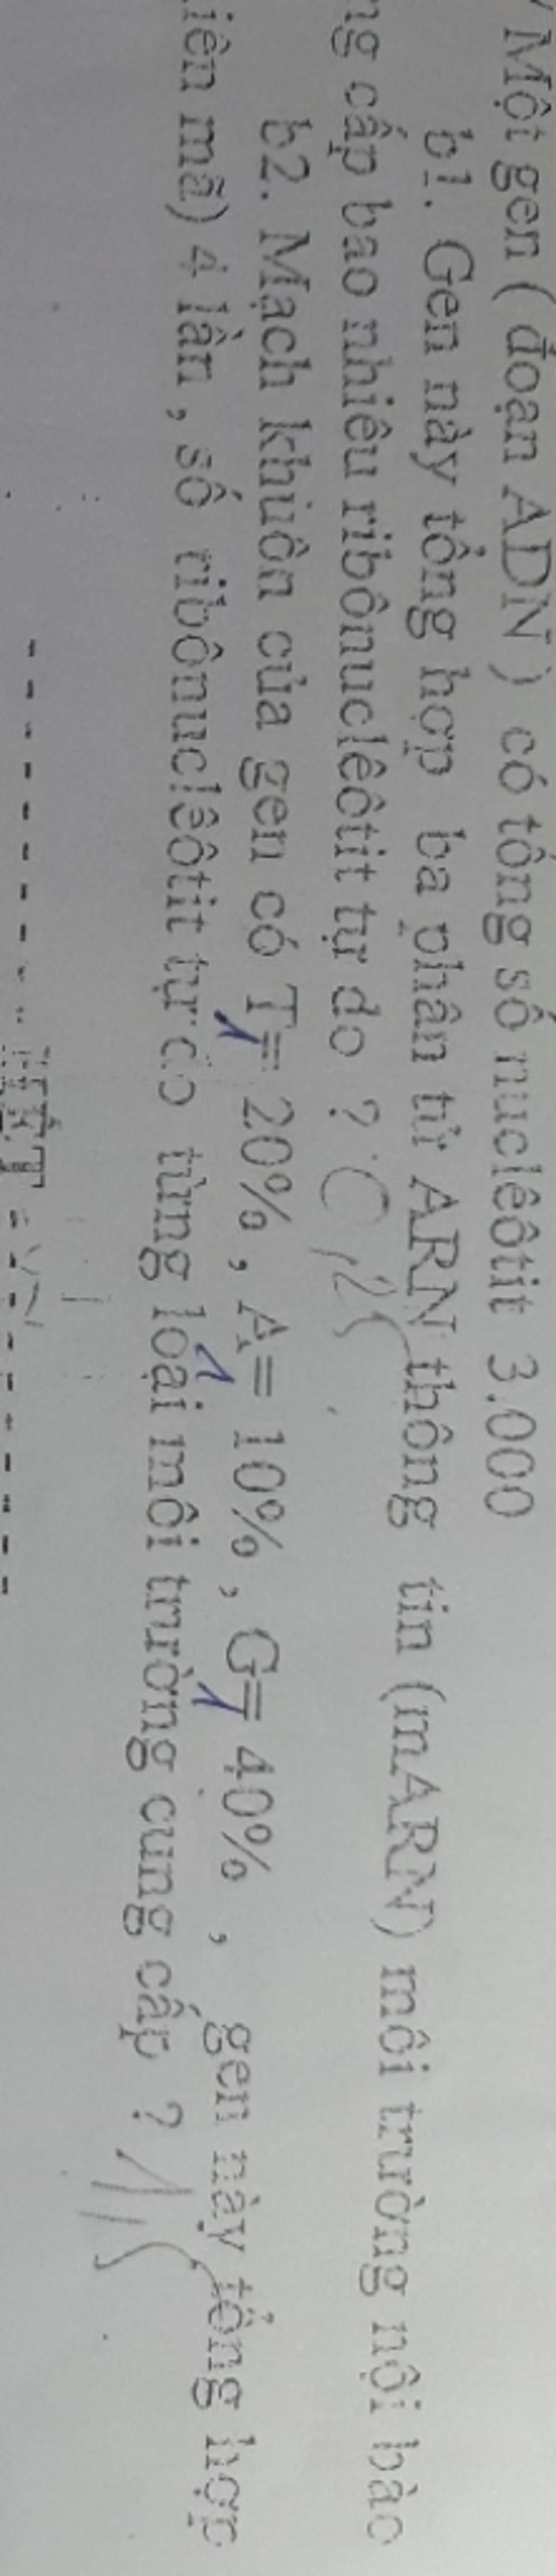 Một gen ( đoạn ADN ) có tổng số nuclêôtit 3.000
b1. Gen này tổng hợp ba phân tử ARN thông tin (mARN) môi trường nội bào
ng cấp bao nhiêu ribônuclêôtit tự do ? 0,25
b2. Mạch khuôn của gen có T1= 20% , A1= 10% , G1= 40% , gen này tổng hợp
iên mã) 4 lần , số ribônuclêôtit tự do từng loại môi trường cung cấp ? 1,5
HẾT